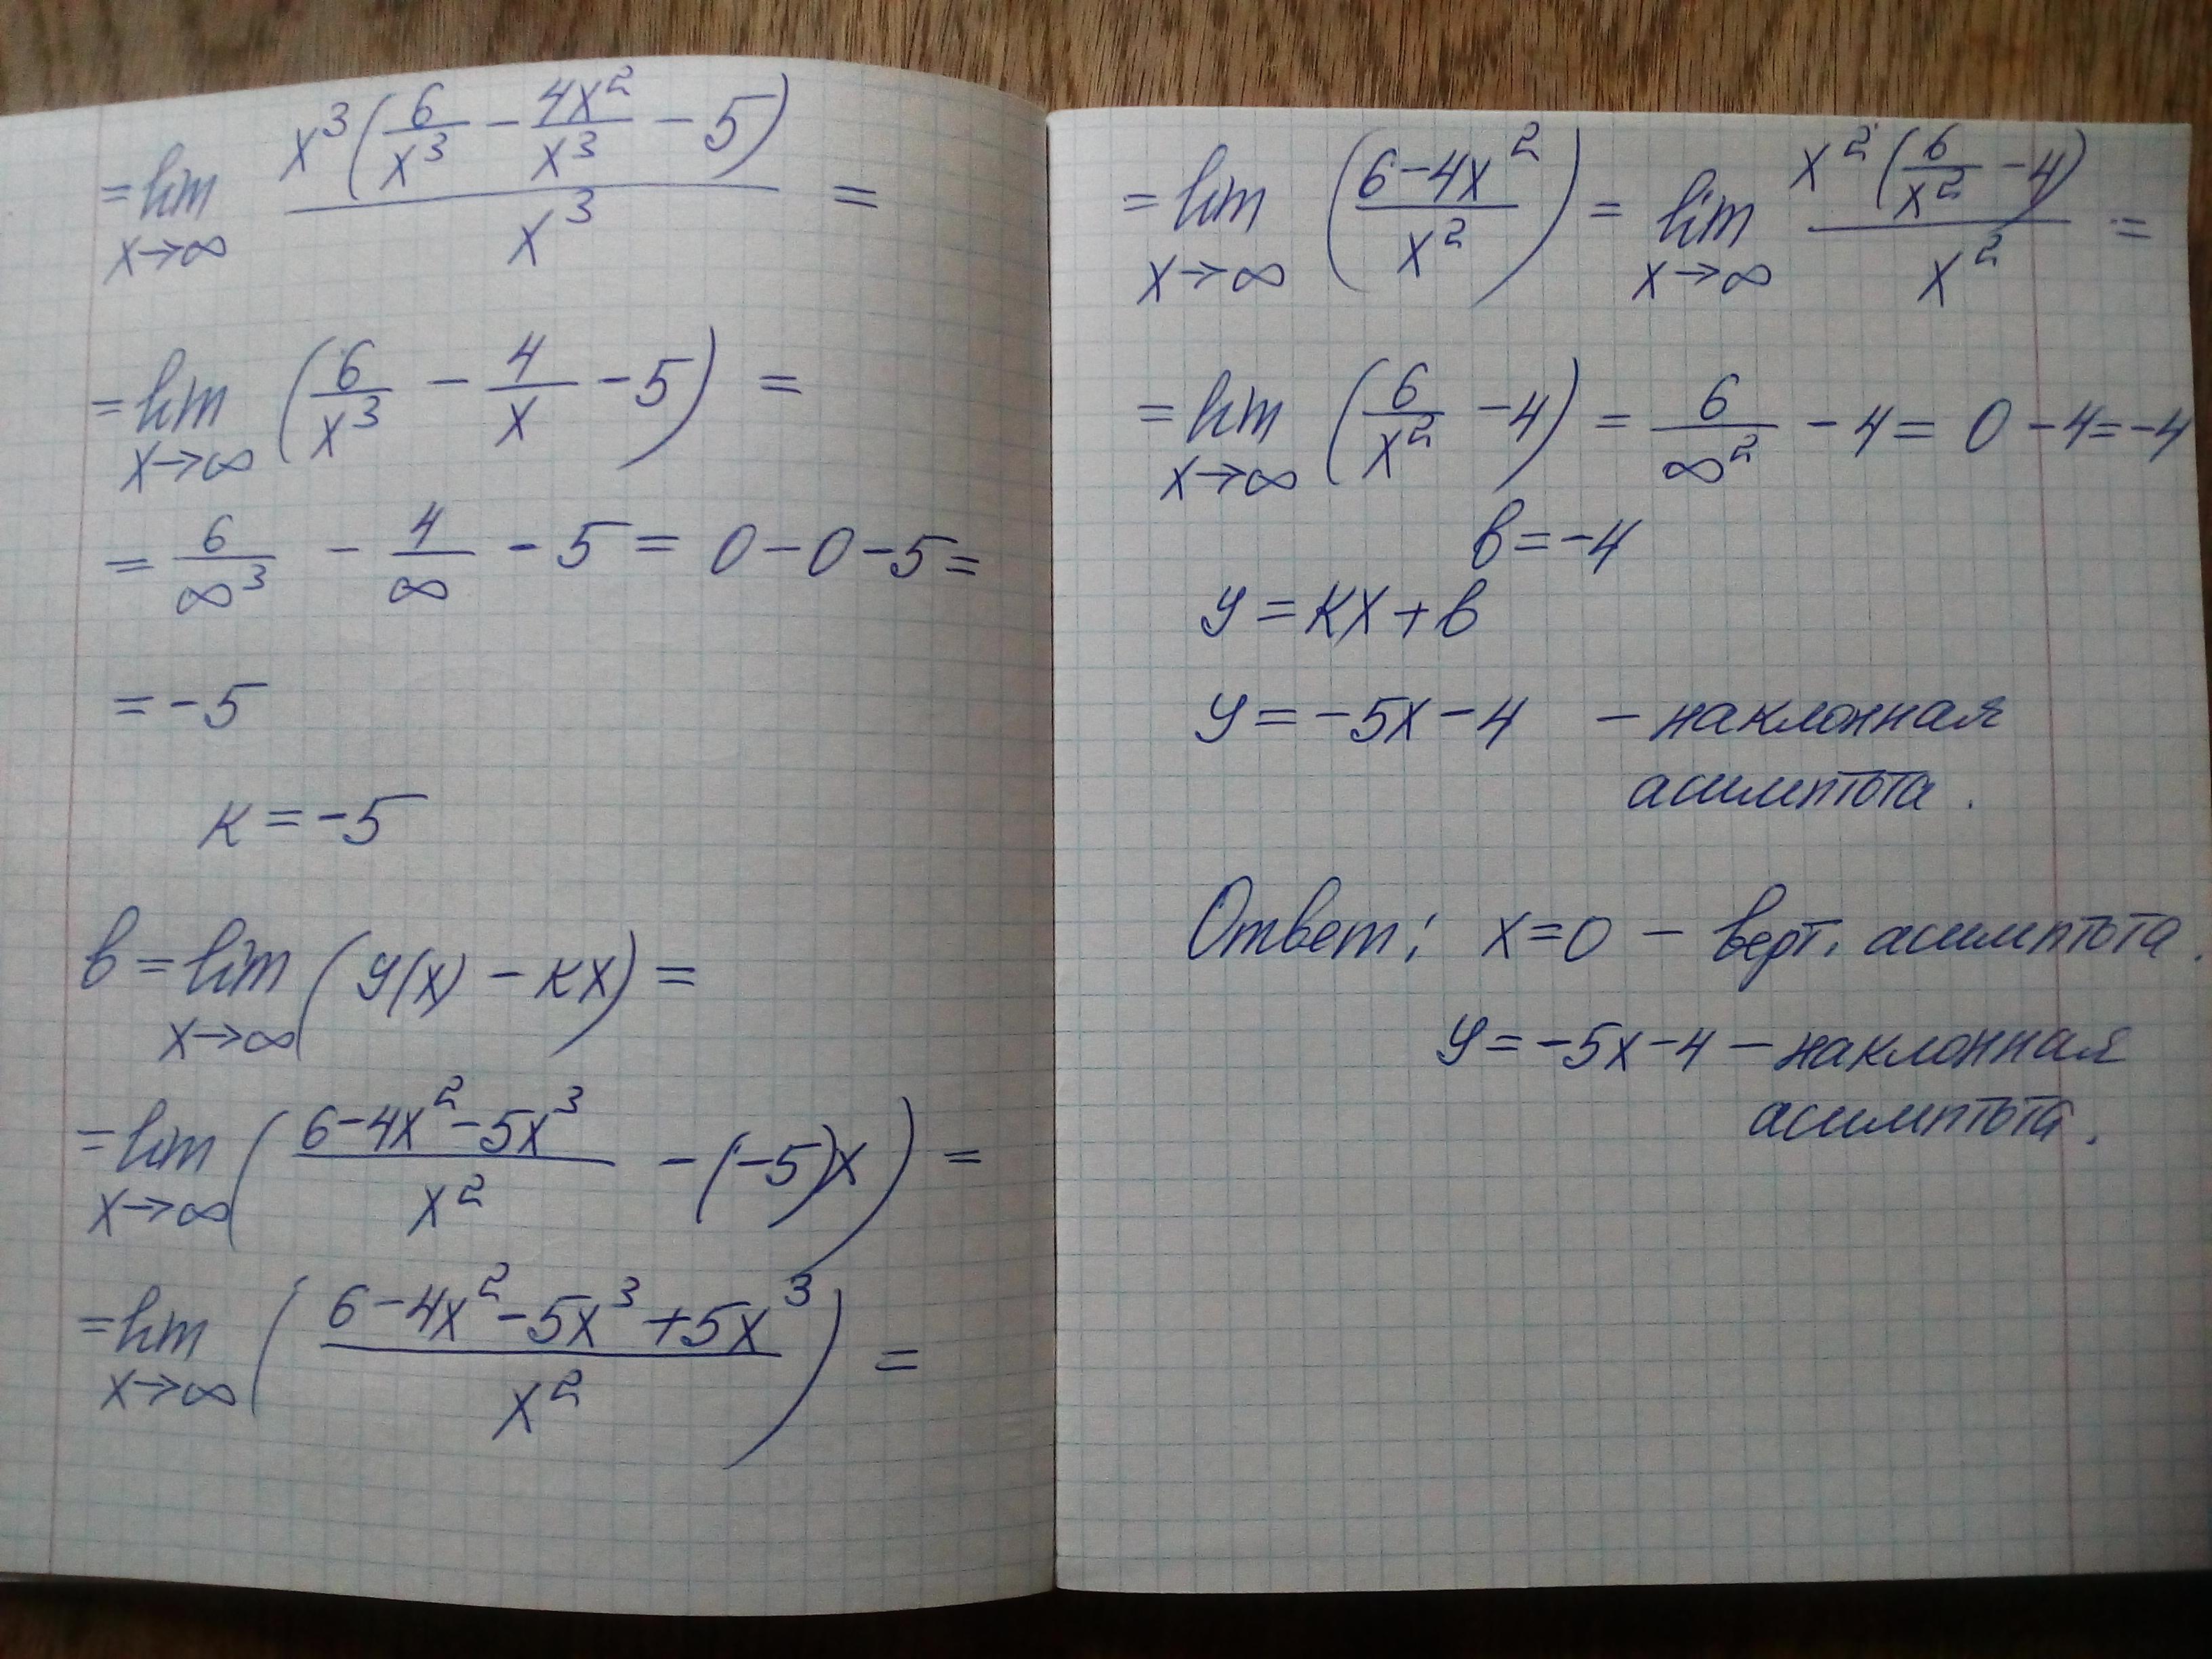 = lim x→∞ x³(6/x³ - 4x²/x³ - 5) / x³ =
= lim x→∞ (6/x³ - 4/x - 5) =
= 6/∞³ - 4/∞ - 5 = 0 - 0 - 5 =
= -5
к = -5
в = lim x→∞ (y(x) - кx) =
= lim x→∞ ((6 - 4x² - 5x³)/x² - (-5)x) =
= lim x→∞ ((6 - 4x² - 5x³ + 5x³)/x²) =
= lim x→∞ ((6 - 4x²)/x²) = lim x→∞ x²(6/x² - 4)/x² =
= lim x→∞ (6/x² - 4) = 6/∞² - 4 = 0 - 4 = -4
в = -4
y = кx + в
y = -5x - 4 - наклонная
асимптота.
Ответ: x = 0 - верт. асимптота.
y = -5x - 4 - наклонная
асимптота.